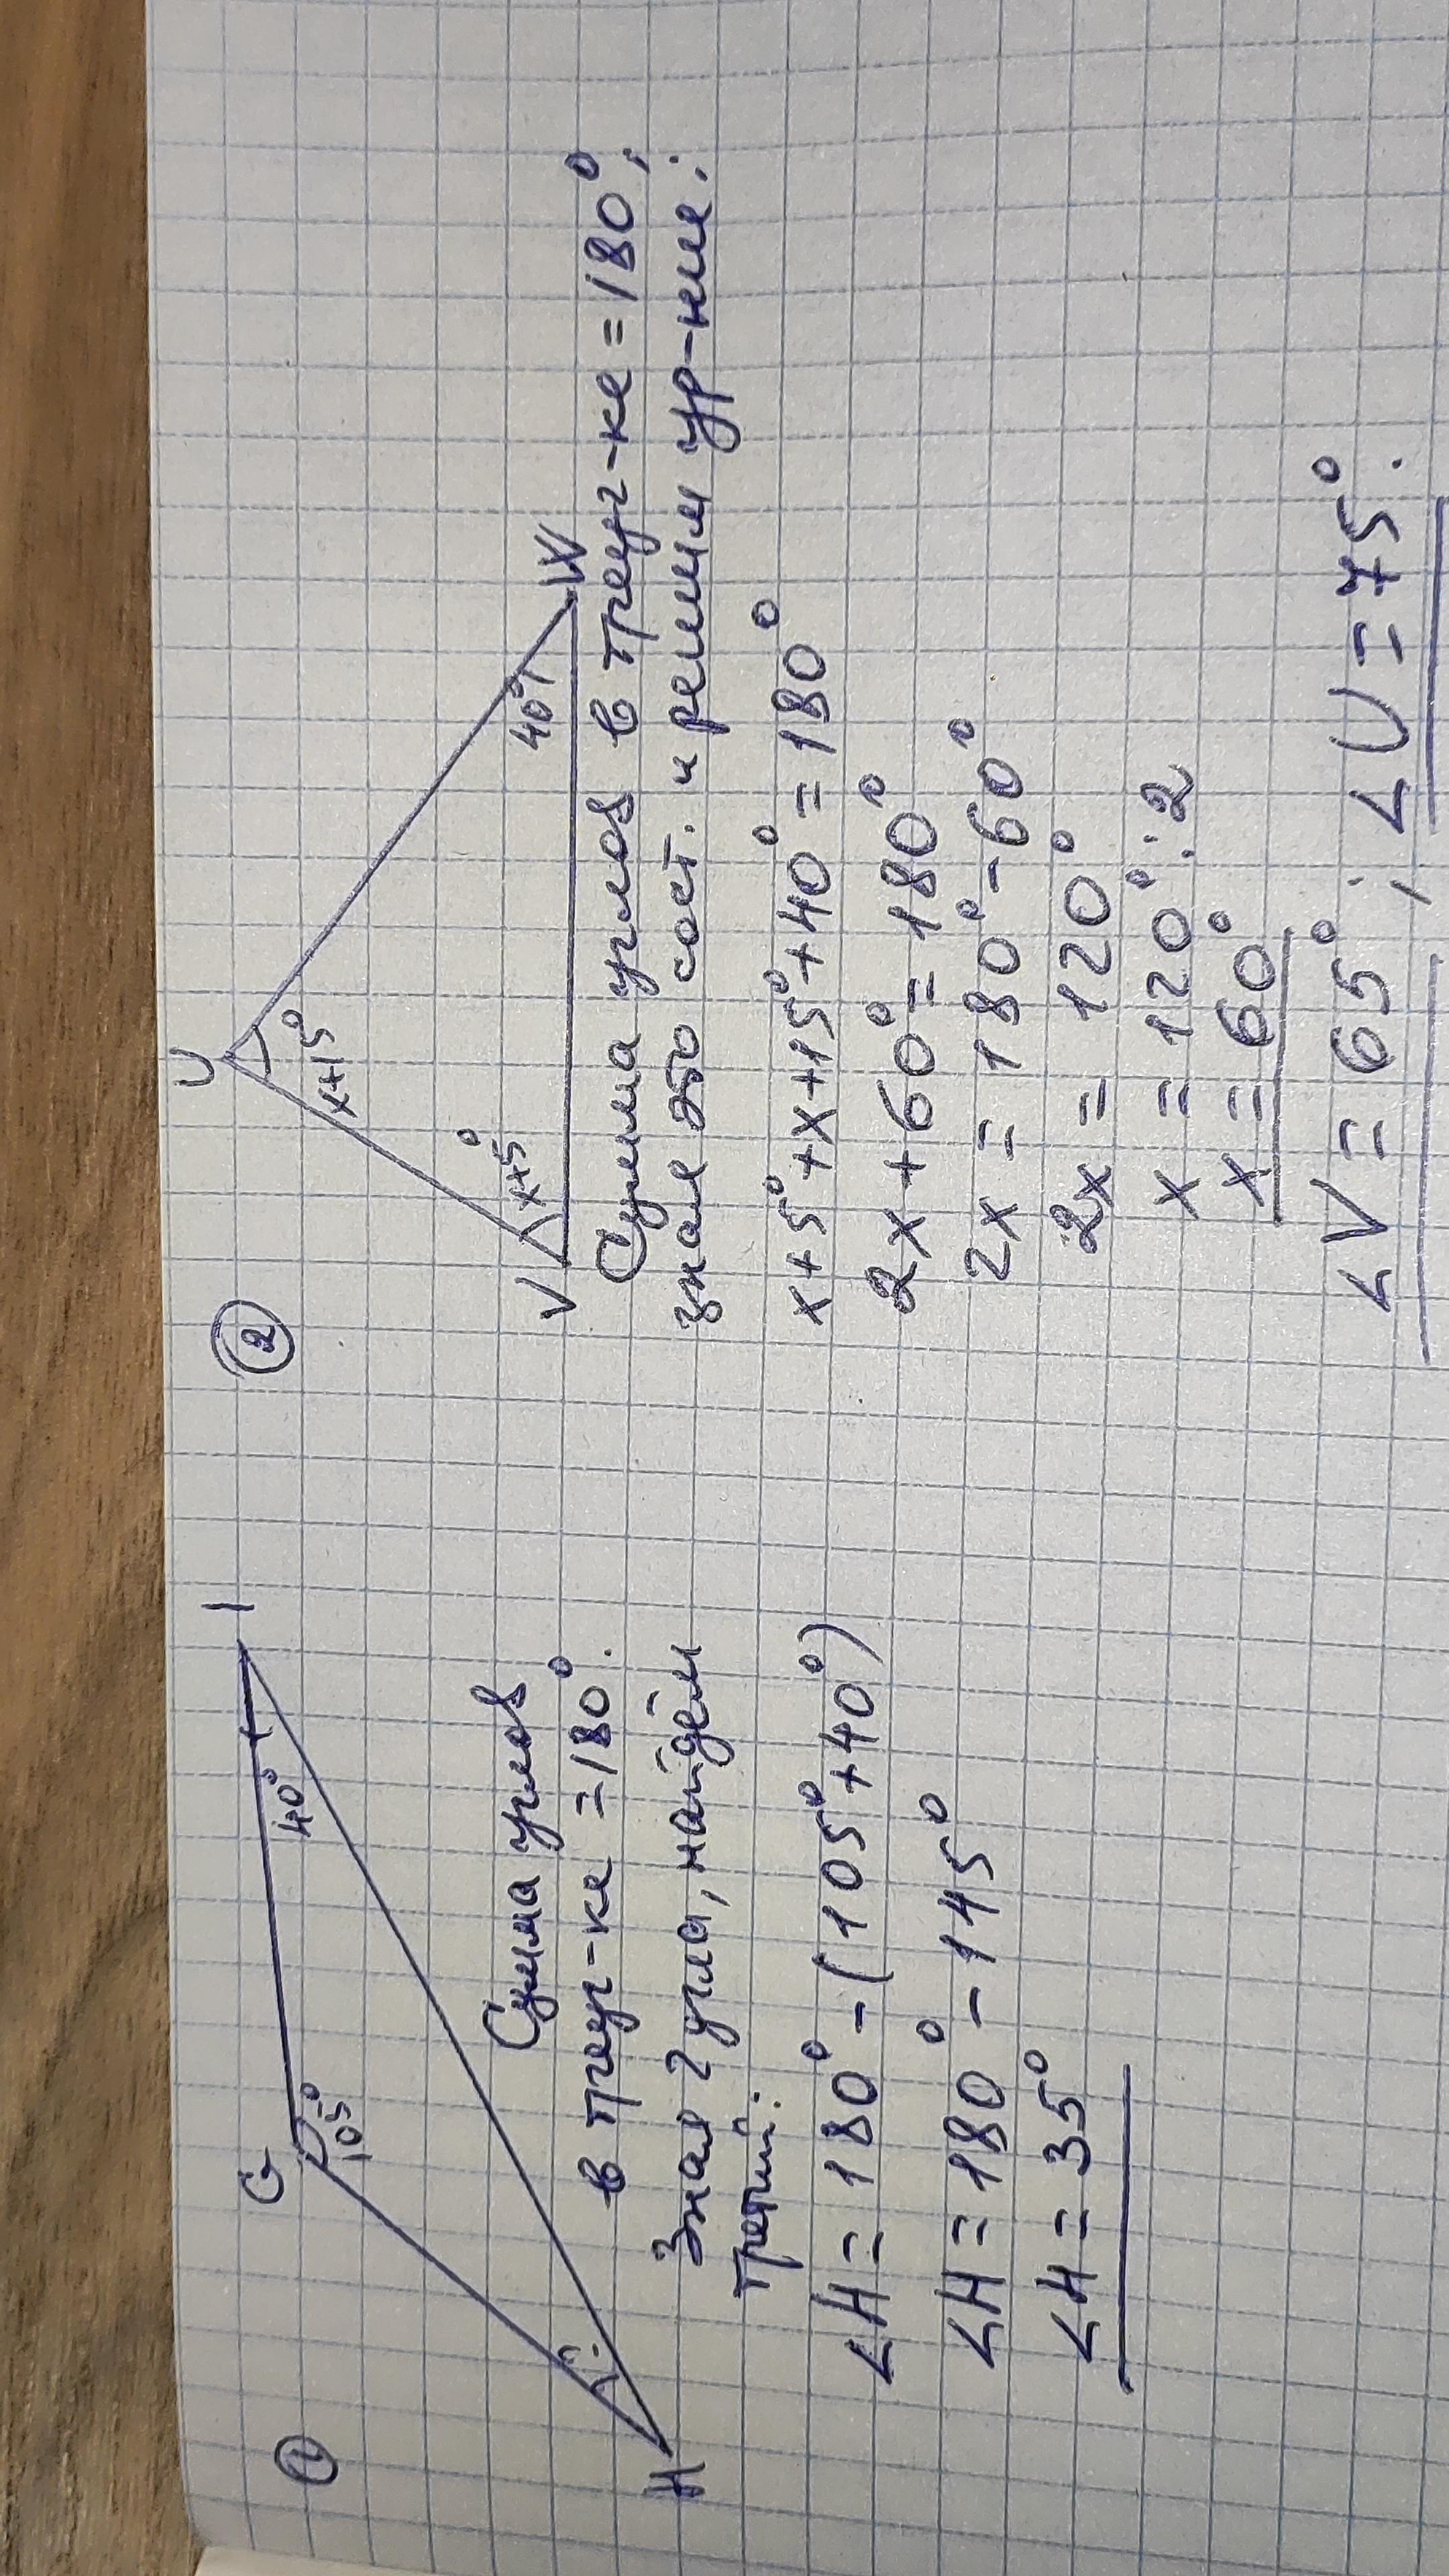 1
G
105°
40°
I
?
H
Сумма углов
в треуг-ке =180°.
Зная 2 угла, найдём
третий:
∠H = 180° - (105° + 40°)
∠H = 180° - 145°
∠H = 35°
2
U
x+15°
x+5°
40°
V
W
Сумма углов в треуг-ке = 180°;
зная это сост. и решим ур-ние:
x + 5° + x + 15° + 40° = 180°
2x + 60° = 180°
2x = 180° - 60°
2x = 120°
x = 120° : 2
x = 60°
∠V = 65° ; ∠U = 75°.